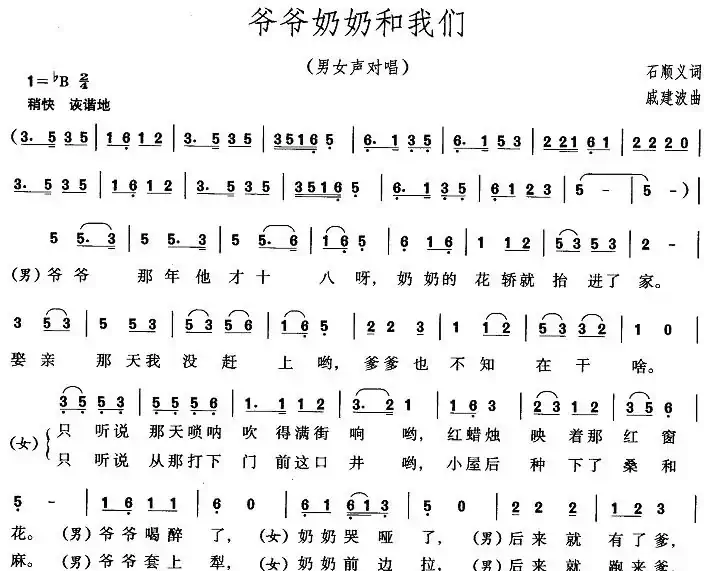 爷爷奶奶和我们
(男女声对唱)
1=♭B 2/4
石顺义词
稍快 诙谐地
戚建波曲
(3. 5 3 5 | 1 6 1 2 | 3. 5 3 5 | 3 5 1 6 5 | 6. 1 3 5 | 6. 1 3 5 | 2 2 1 6 1 | 2 2 2 0 |
3. 5 3 5 | 1 6 1 2 | 3. 5 3 5 | 3 5 1 6 5 | 6. 1 3 5 | 6 1 2 3 | 5 - | 5 - ) |
5 5. 3 | 5 5. 3 | 5 5. 6 | 1 6 5 | 6 6 1 | 1 1 2 | 5 3 5 3 | 2 - |
(男)爷爷 那年他才十 八呀,奶奶的 花轿就 抬进了 家。
3 5 3 | 5 5 3 | 5 3 5 6 | 1 6 5 | 2 2 3 | 1 1 2 | 5 3 3 2 | 1 0 |
娶亲 那天我 没赶 上哟,爹爹也 不知 在干 啥。
3 5 5 3 | 5 5 5 6 | 1. 1 1 2 | 3. 2 1 | 1 6 3 | 2 3 1 2 | 3 5 3 |
(女) 只听说 那天唢呐 吹得满街 响哟,红蜡烛 映着那 红窗
只听说 从那打下 门前这口 井哟,小屋后 种下了 桑和
5 - | 1 6 1 1 | 6 0 | 6 1 6 1 3 | 5 0 | 2 2 2 | 1 2 3 |
花。(男)爷爷喝醉 了,(女)奶奶哭哑 了,(男)后来就 有了爹,
麻。(男)爷爷套上 犁,(女)奶奶前边 拉,(男)后来就 跑来爹,